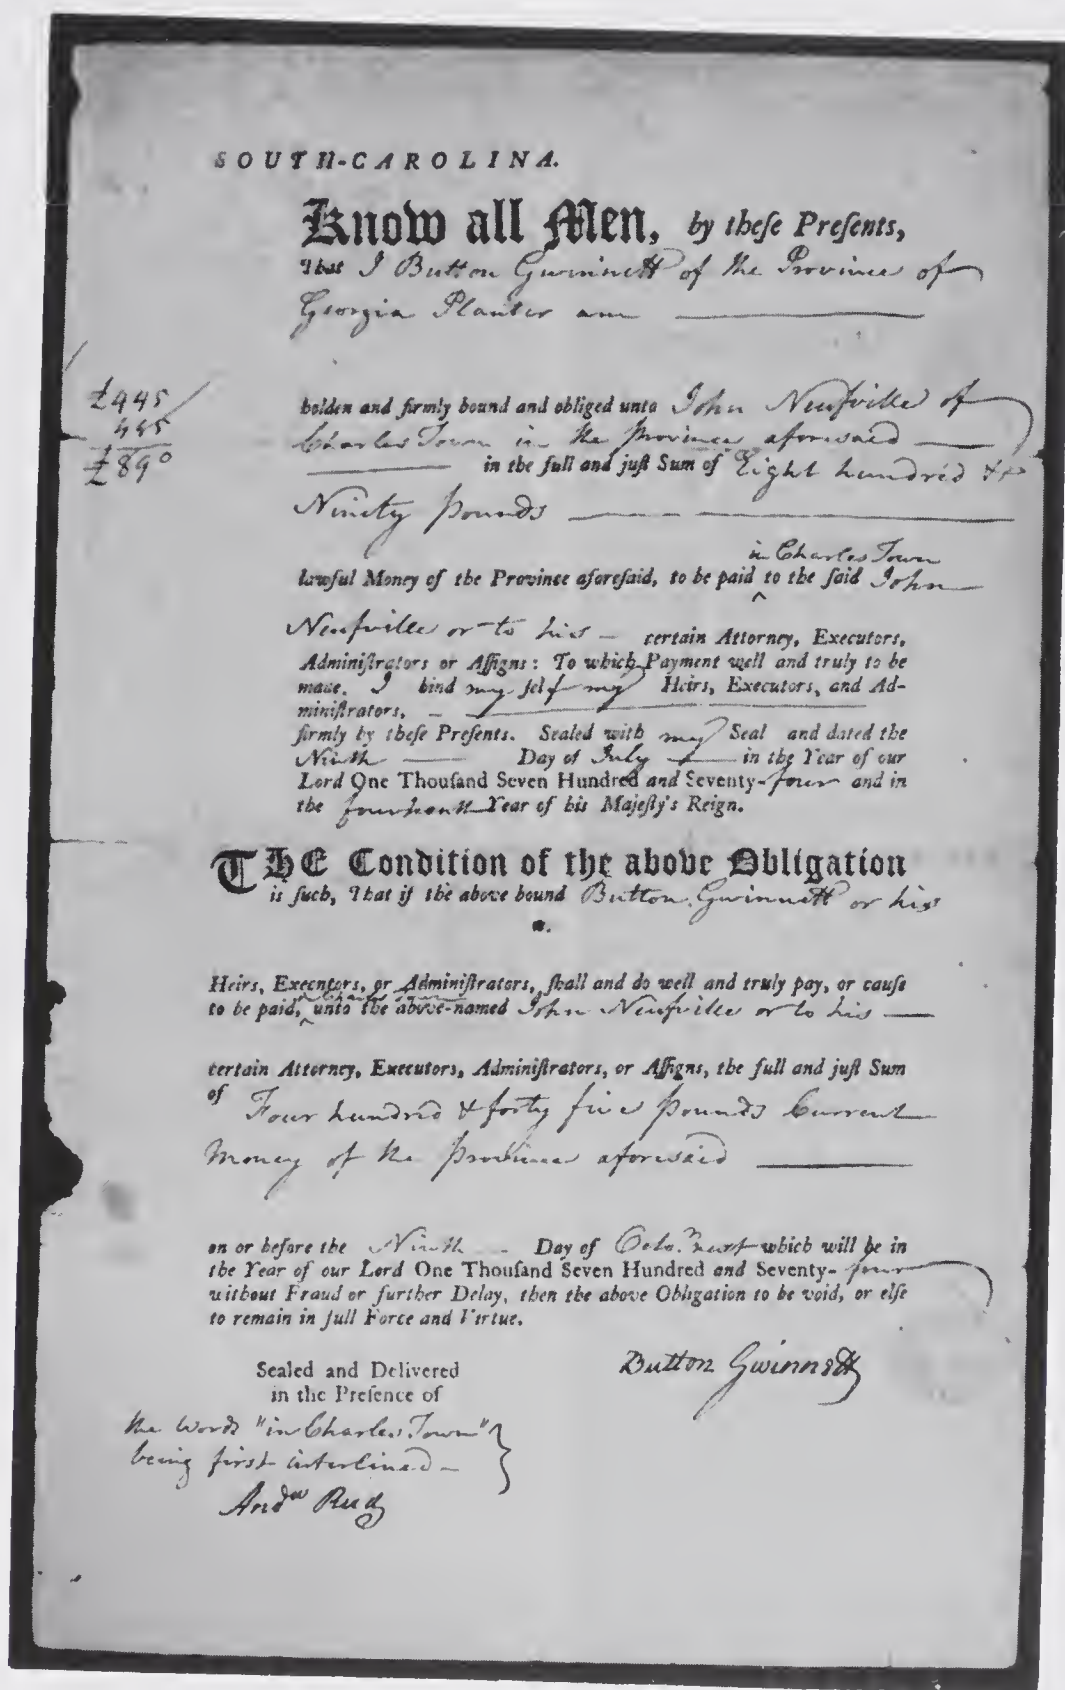 SOUTH-CAROLINA.
Know all Men, by theſe Preſents,
That I Button Gwinnett of the Province of
Georgia Planter am
£445
445
£890
holden and firmly bound and obliged unto John Neufville of
Charles Town in the Province aforesaid
in the full and juſt Sum of Eight hundred &
Ninety pounds
in Charles Town
lawful Money of the Province aforeſaid, to be paid ^ to the ſaid John
Neufville or to his certain Attorney, Executors,
Adminiſtrators or Aſſigns: To which Payment well and truly to be
made, I bind my ſelf my Heirs, Executors, and Ad-
miniſtrators,
firmly by theſe Preſents. Sealed with my Seal and dated the
Ninth Day of July in the Year of our
Lord One Thouſand Seven Hundred and Seventy-four and in
the fourteenth Year of his Majeſty's Reign.
THE Condition of the above Obligation
is ſuch, That if the above bound Button Gwinnett or his
Heirs, Executors, or Adminiſtrators, ſhall and do well and truly pay, or cauſe
in Charles Town
to be paid, ^ unto the above-named John Neufville or to his
certain Attorney, Executors, Adminiſtrators, or Aſſigns, the full and juſt Sum
of Four hundred & forty five pounds Current
Money of the Province aforesaid
on or before the Ninth Day of Octo. next which will be in
the Year of our Lord One Thouſand Seven Hundred and Seventy-four
without Fraud or further Delay, then the above Obligation to be void, or elſe
to remain in full Force and Virtue.
Sealed and Delivered
in the Preſence of
Button Gwinnett
the Words "in Charles Town"
being first interlined
And^w Reid